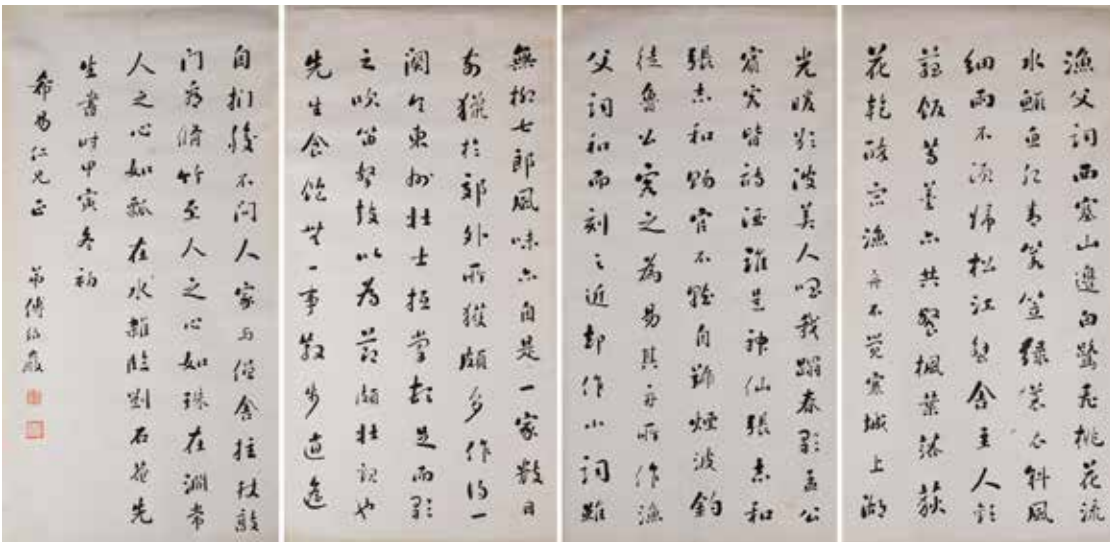 漁父詞西塞山邊白鷺飛桃花流
水鱖魚肥青箬笠綠蓑衣斜風
細雨不須歸松江蟹舍主人歡
菰飯蓴羹亦共餐楓葉落荻
花乾醉宿漁舟不覺寒城上湖
光暖欲波美人唱我蹋春歌魯公
賓客皆詩酒誰是神仙張志和
張志和賜官不自號煙波釣
徒魯公之為易其舟所作漁
父詞和而刻之近却作小詞雖
無柳七郎風味亦自是一家數日
前獵於郊外所獲頗多作得一
闋令東州壯士抵掌頓足而歌
之吹笛擊鼓以為節頗壯觀也
先生食飽無一事散步逍遙
自捫腹不問人家與僧舍拄杖敲
門看脩竹至人之心如珠在淵常
人之心如瓢在水雜臨劉石菴先
生書時甲寅冬初
希易仁兄正 弟傅紹巖